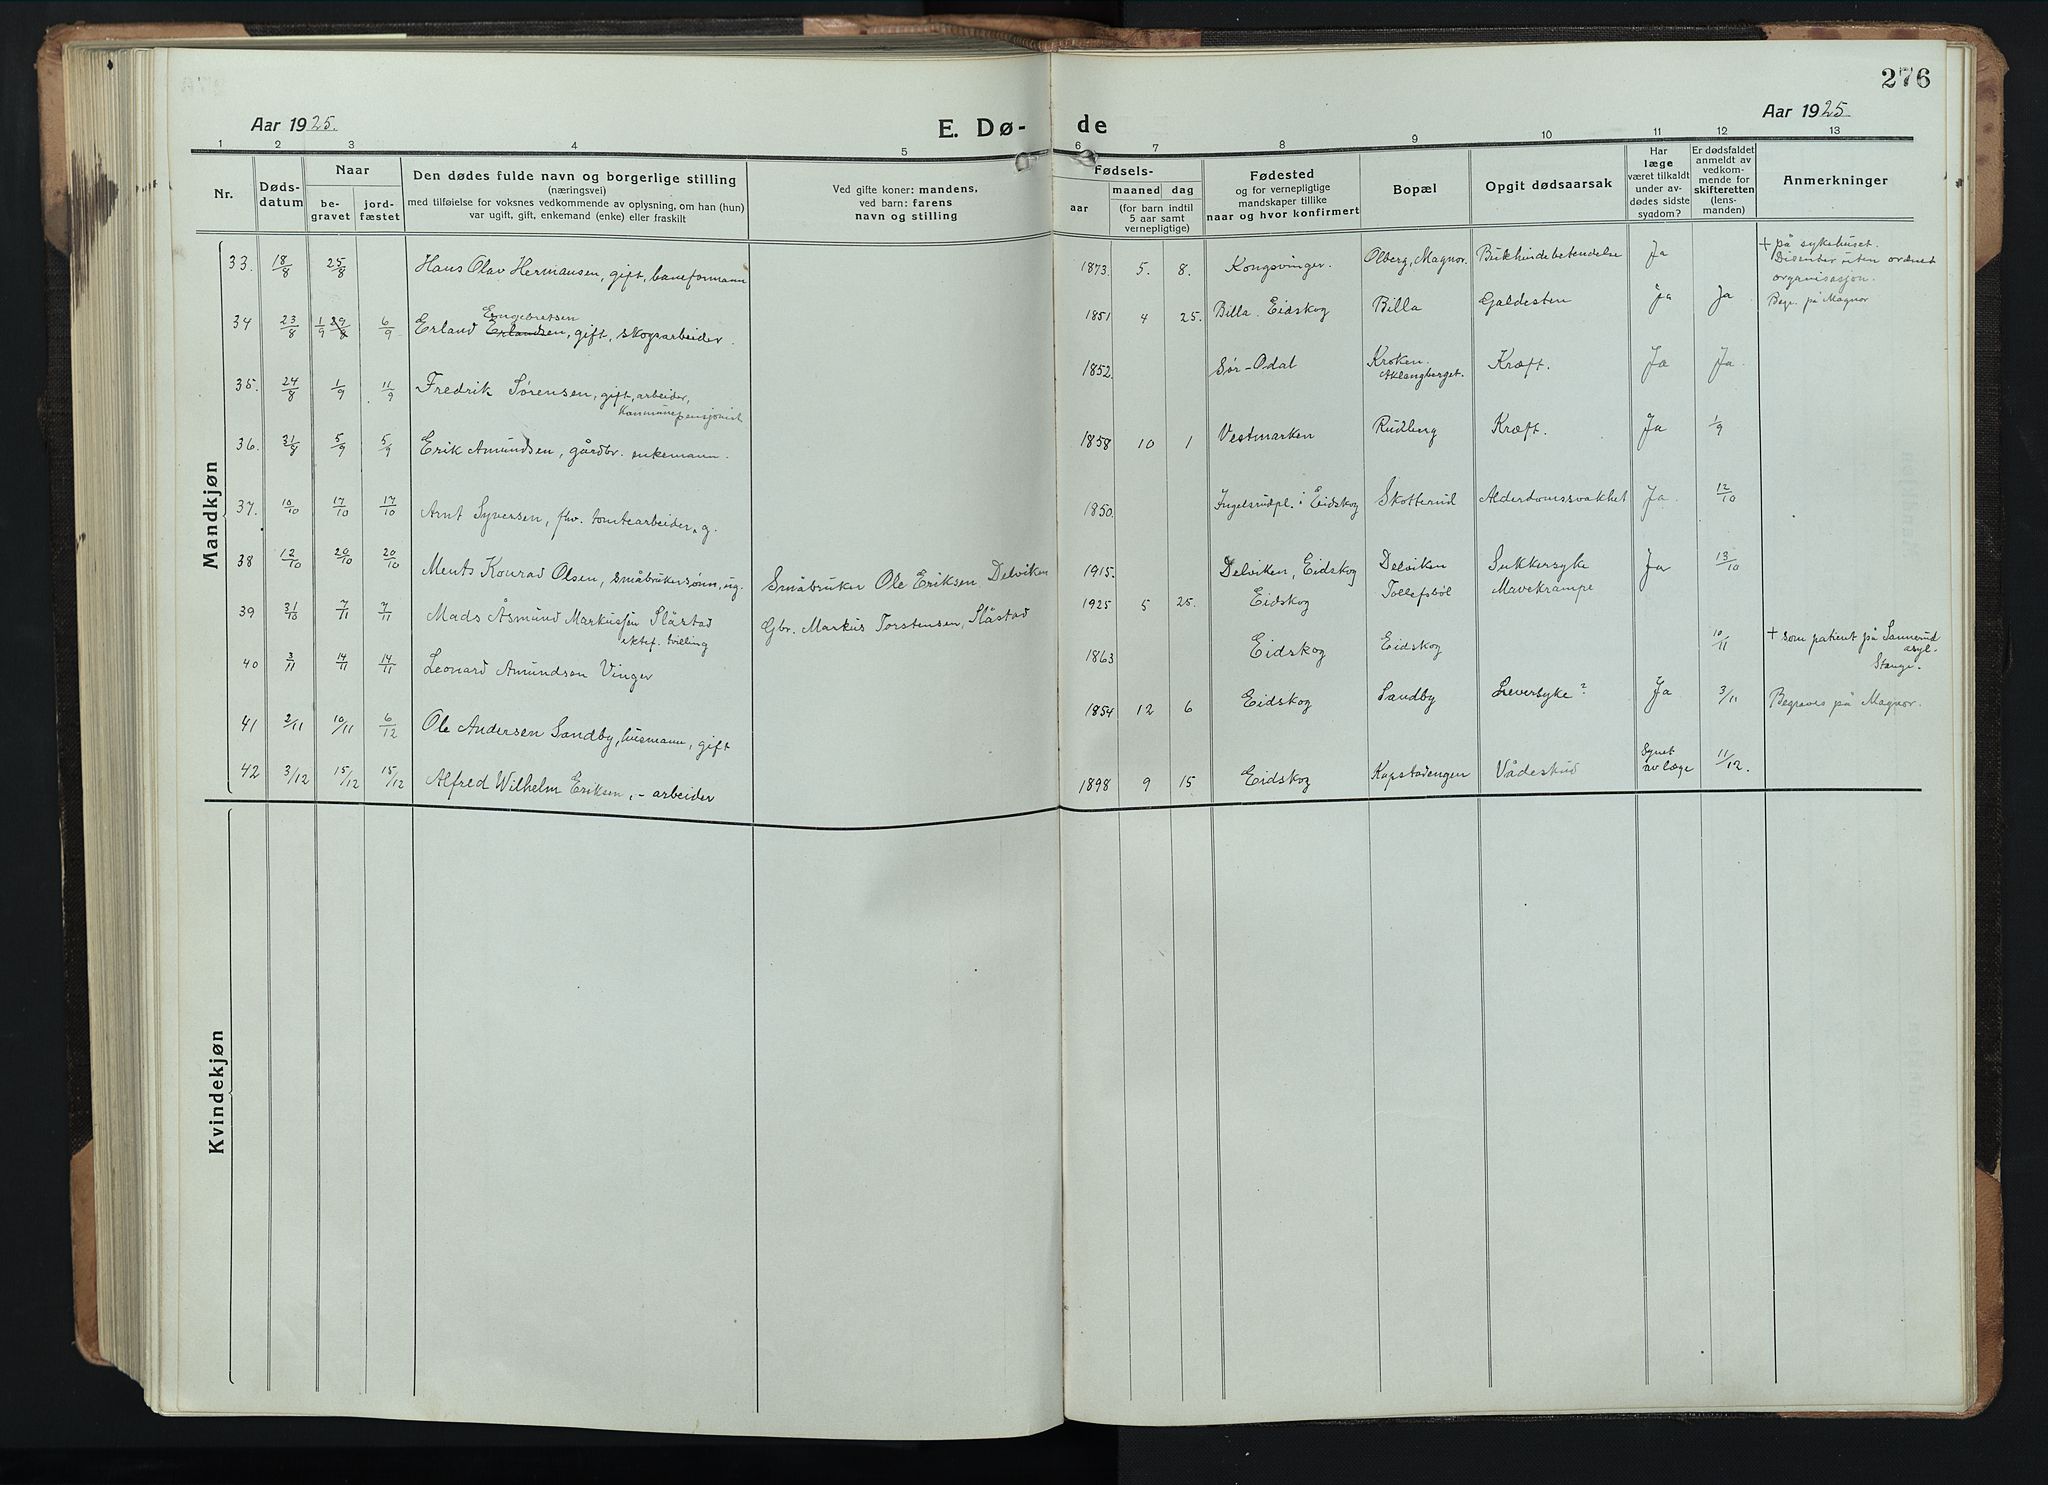 276
Aar 1925.
E. Dø-
de
Aar 1925
1 2 3 4 5 6 7 8 9 10 11 12 13
Nr.
Døds-
datum
Naar
be-
gravet
jord-
fæstet
Den dødes fulde navn og borgerlige stilling
(næringsvei)
med tilføielse for voksnes vedkommende av oplysning, om han (hun)
var ugift, gift, enkemand (enke) eller fraskilt
Ved gifte koner: mandens,
ved barn: farens
navn og stilling
Fødsels-
aar
maaned
dag
(for barn indtil
5 aar samt
vernepligtige)
Fødested
og for vernepligtige
mandskaper tillike
naar og hvor konfirmert
Bopæl
Opgit dødsaarsak
Har
læge
været tilkaldt
under av-
dødes sidste
sygdom?
Er dødsfaldet
anmeldt av
vedkom-
mende for
skifteretten
(lens-
manden)
Anmerkninger
Mandkjøn
33. 18/8 25/8 Hans Olav Hermansen, gift, baneformann 1873. 5. 8. Kongsvinger. Olberg, Magnor. Bukhindebetendelse Ja + på sykehuset.
Disenter uten ordnet
organisasjon.
Begr. på Magnor
Engebretsen
34 23/8 1/9 29/8 6/9 Erland Erlandsen, gift, skogsarbeider. 1851 4 25. Billa. Eidskog Billa Galdesten Ja Ja
35. 24/8 1/9 11/9 Fredrik Sørensen, gift, arbeider, 1852. Sør-Odal Kroken. Kræft. Ja Ja
Kommunepensjonist
Aklangberget.
36. 31/8 5/9 5/9 Erik Amundsen, gårdbr. enkemann. 1858 10 1 Vestmarken Rudberg Kræft. Ja 1/9
37. 10/10 17/10 17/10 Arnt Syversen, fhv. tomtearbeider, g. 1850. Ingelsrudpl. i Eidskog Skotterud Alderdomssvakhet Ja. 12/10
38 12/10 20/10 20/10 Ments Konrad Olsen, småbrukersønn, ug. Småbruker Ole Eriksen Delviken 1915. Delviken, Eidskog Delviken Sukkersyke Ja 13/10
39 31/10 7/11 7/11 Mads Åsmund Markussen Slåstad Gbr. Markus Torstensen, Slåstad 1925 5 25. Eidskog Tollefsbøl Mavekrampe
ektef. tvilling
40 3/11 14/11 14/11 Leonard Amundsen Vinger 1863 Eidskog Eidskog 10/11 + som patient på Sannerud
asyl.
Stange.
41 2/11 10/11 6/12 Ole Andersen Sandby, husmann, gift 1854 12 6 Eidskog Sandby Leversyke? Ja 3/11 Begraves på Magnor.
42 3/12 15/12 15/12 Alfred Wilhelm Eriksen, - arbeider 1898 9 15 Eidskog Kapstadengen Vådeskud Synet
av læge 11/12.
Kvindekjøn